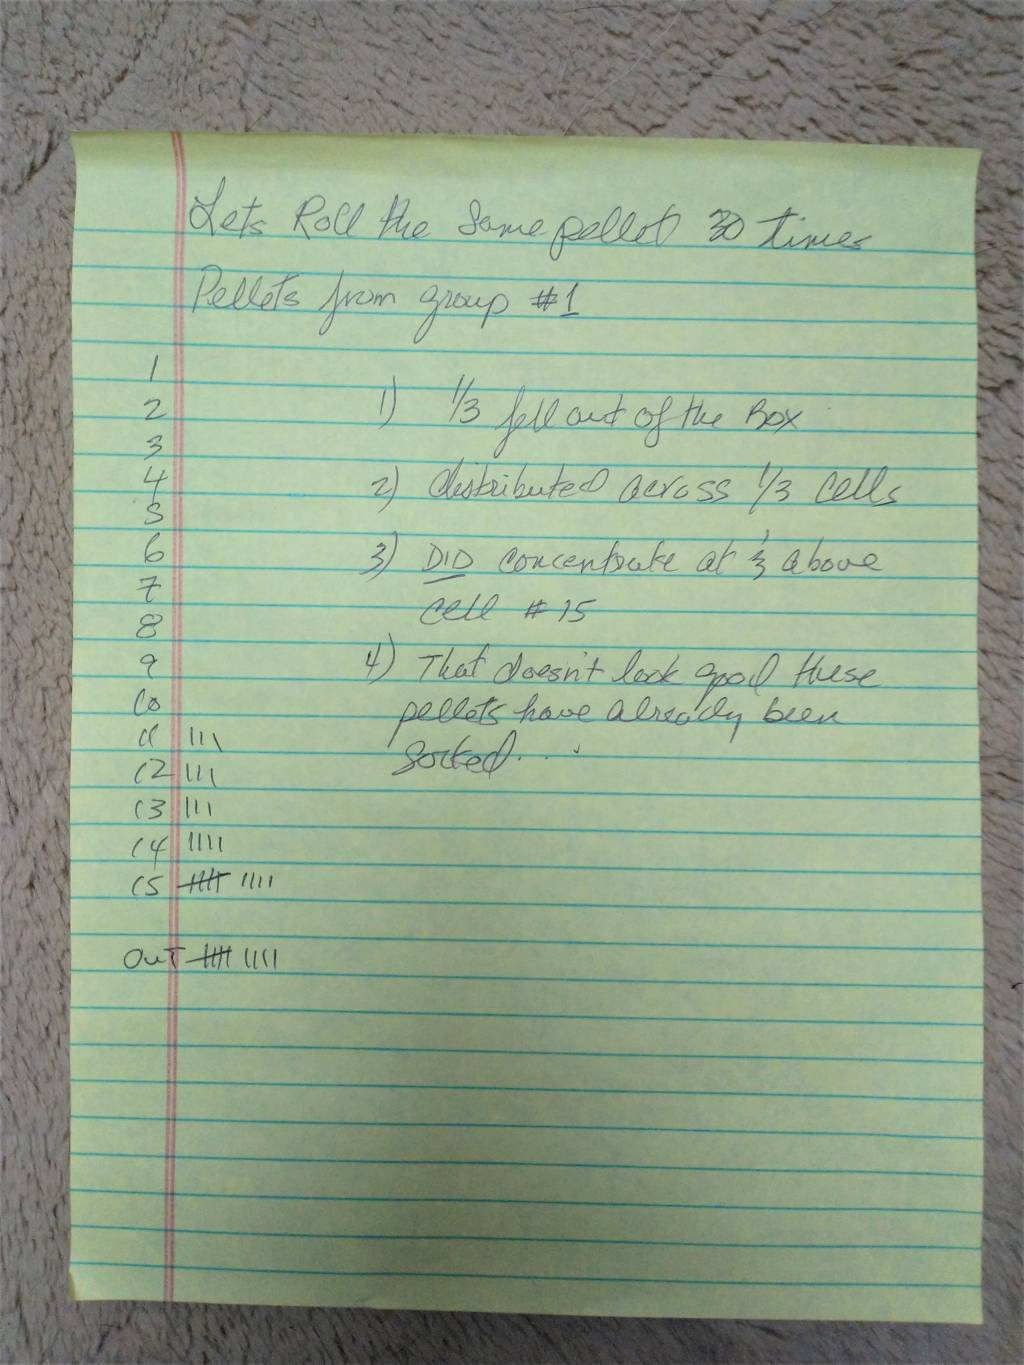 Lets Roll the Same pellet 30 times
Pellets from group #1
1
2
3
4
5
6
7
8
9
10
11 |||
12 |||
13 |||
14 ||||
15 卌 ||||
OUT 卌 ||||
1) 1/3 fell out of the Box
2) distributed across 1/3 cells
3) DID concentrate at 1/3 above
cell #15
4) That doesn't look good these
pellets have already been
sorted....